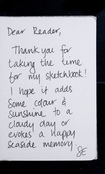 Dear Reader,
Thank you for
taking the time
for my sketchbook!
I hope it adds
some colour &
sunshine to a
cloudy day or
evokes a happy
seaside memory
JE